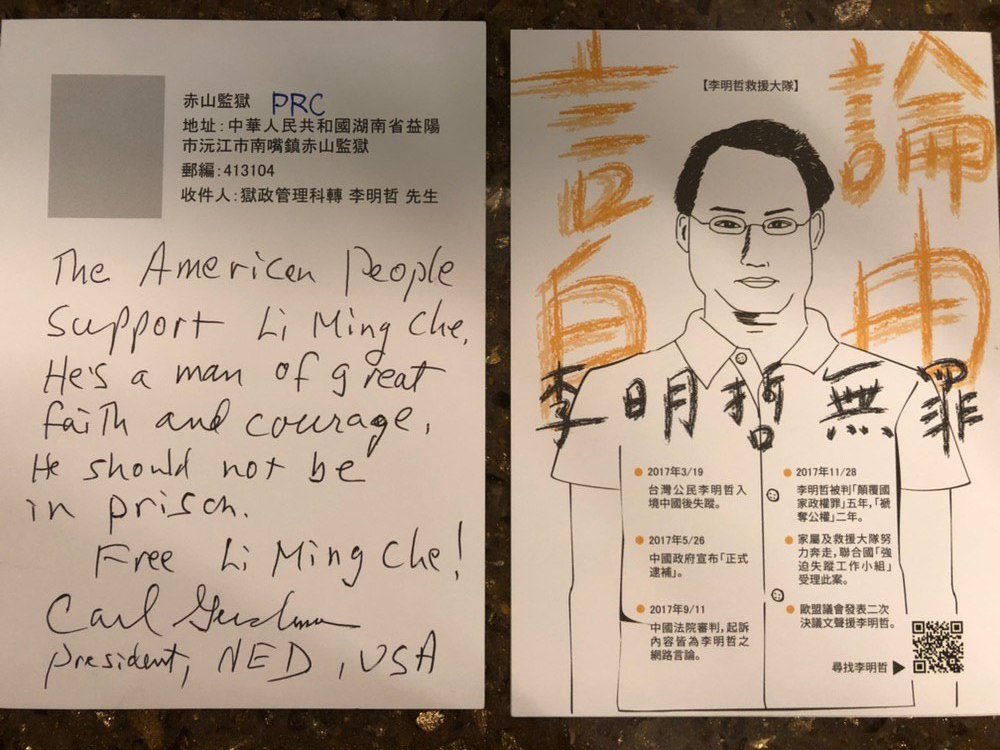 赤山監獄 PRC
地址:中華人民共和國湖南省益陽
市沅江市南嘴鎮赤山監獄
郵編:413104
收件人:獄政管理科轉 李明哲 先生
The American People
support Li Ming Che.
He's a man of great
faith and courage.
He should not be
in prison.
Free Li Ming Che!
Carl Gershman
president, NED, USA
【李明哲救援大隊】
言論
自由
李明哲無罪
2017年3/19
台灣公民李明哲入
境中國後失蹤。
2017年5/26
中國政府宣布「正式
逮補」。
2017年9/11
中國法院審判,起訴
內容皆為李明哲之
網路言論。
2017年11/28
李明哲被判「顛覆國
家政權罪」五年,「褫
奪公權」二年。
家屬及救援大隊努
力奔走,聯合國「強
迫失蹤工作小組」
受理此案。
歐盟議會發表二次
決議文聲援李明哲。
尋找李明哲